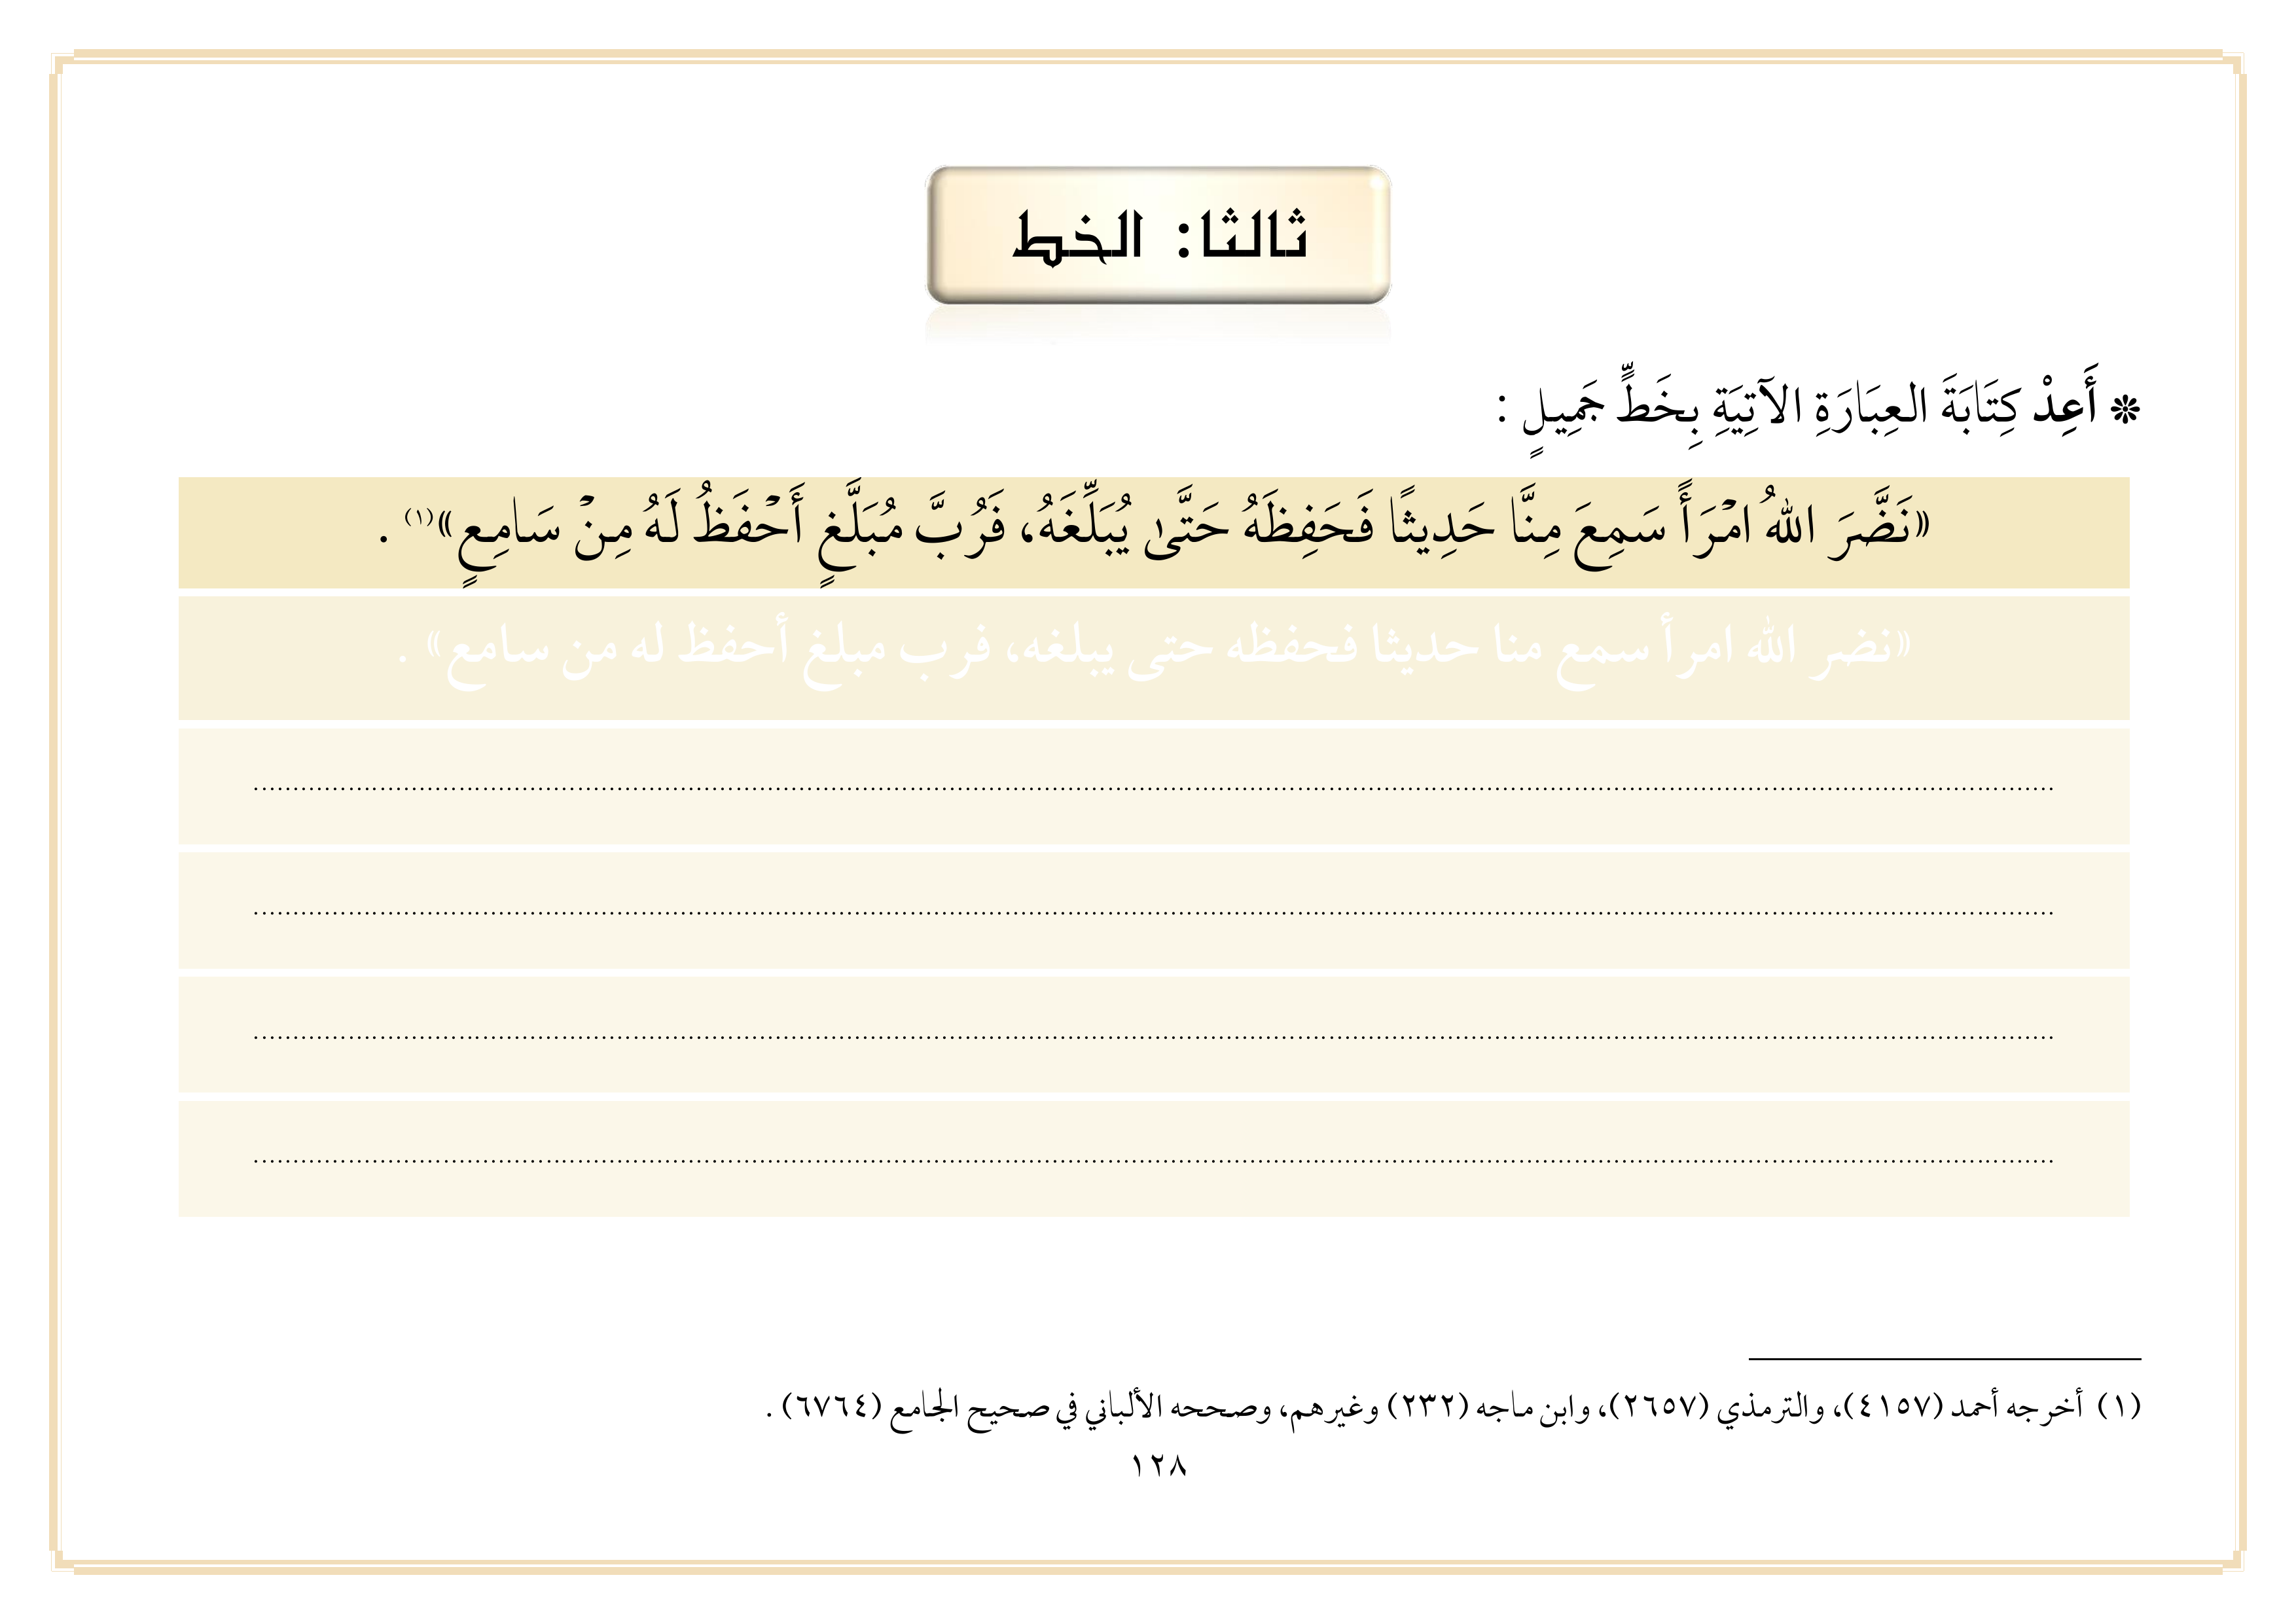 ثالثا: الخط
❊ أَعِدْ كِتَابَةَ العِبَارَةِ الآتِيَةِ بِخَطٍّ جَمِيلٍ :
«نَضَّرَ اللهُ امْرَأً سَمِعَ مِنَّا حَدِيثًا فَحَفِظَهُ حَتَّىٰ يُبَلِّغَهُ، فَرُبَّ مُبَلَّغٍ أَحْفَظُ لَهُ مِنْ سَامِعٍ»(١) .
«نضر الله امرأ سمع منا حديثا فحفظه حتى يبلغه، فرب مبلغ أحفظ له من سامع» .
(١) أخرجه أحمد (٤١٥٧)، والترمذي (٢٦٥٧)، وابن ماجه (٢٣٢) وغيرهم، وصححه الألباني في صحيح الجامع (٦٧٦٤) .
١٢٨